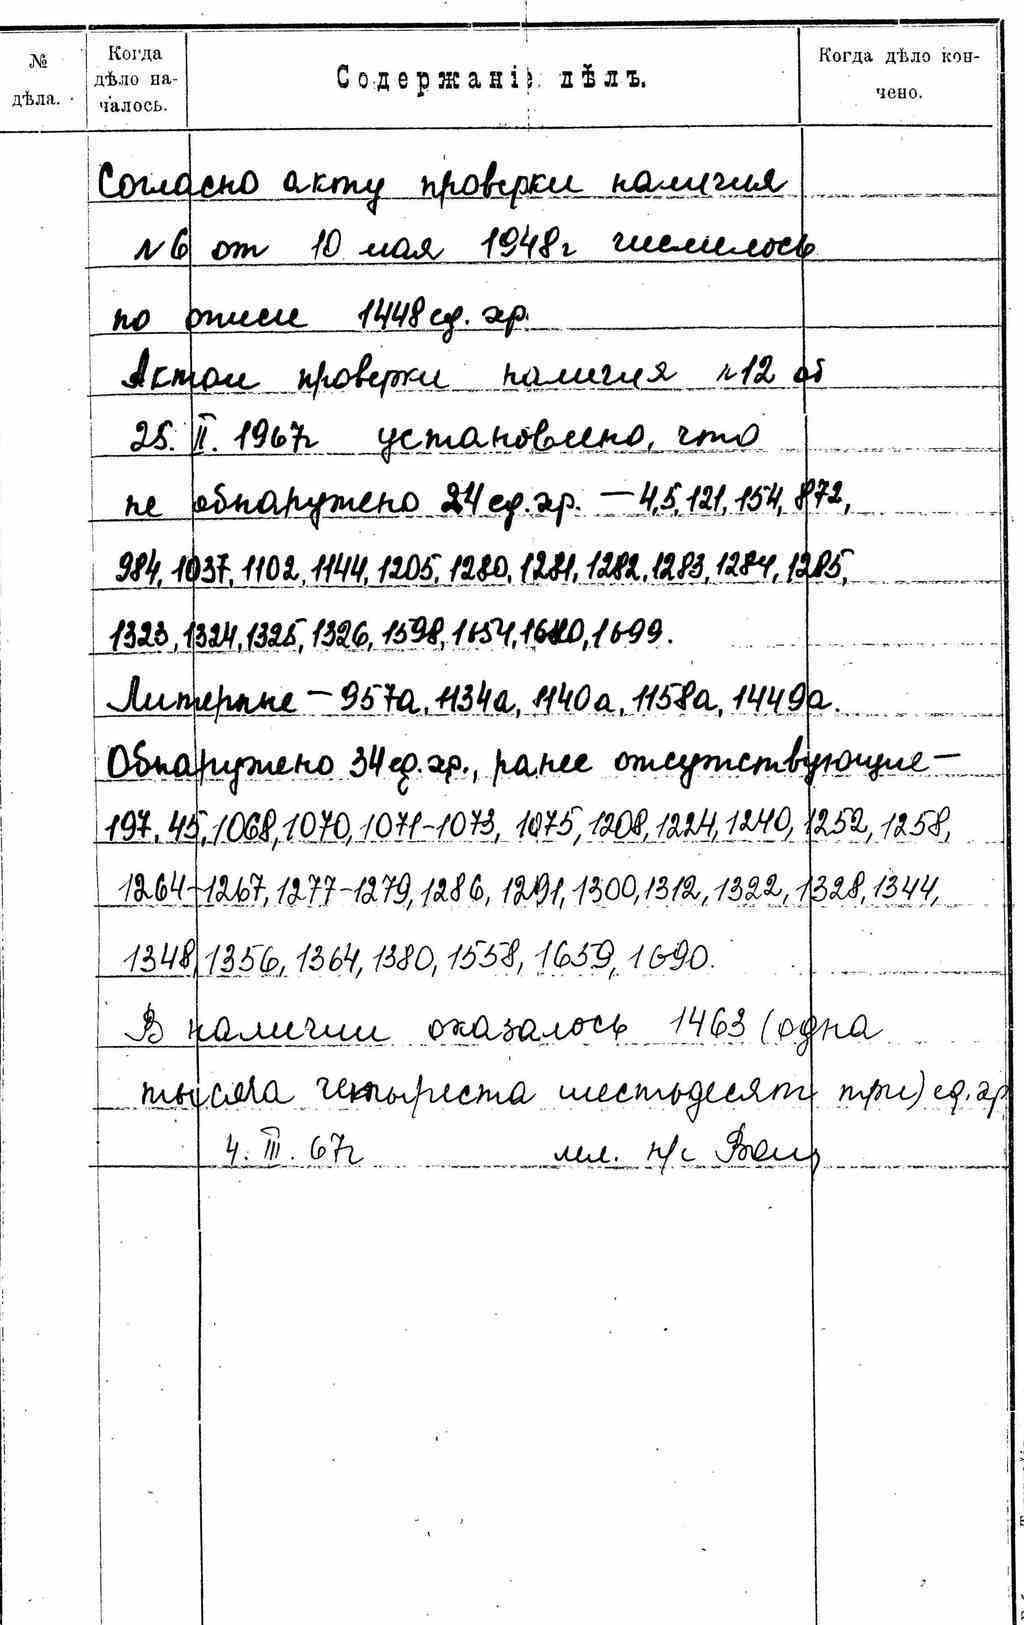 № дѣла.
Когда дѣло началось.
Содержаніе дѣлъ.
Когда дѣло кончено.
Согласно акту проверки наличия
№6 от 10 мая 1948г числилось
по описи 1448 ед. хр.
Актом проверки наличия №12 от
25. II. 1967г установлено, что
не обнаружено 24 ед. хр. — 4,5,121,154,872,
984, 1037, 1102, 1144, 1205, 1280, 1281, 1282, 1283, 1284, 1285,
1323, 1324, 1325, 1326, 1598, 1654, 1680, 1699.
Литерные — 957а, 1134а, 1140а, 1158а, 1449а.
Обнаружено 34 ед. хр., ранее отсутствующие —
197, 45, 1068, 1070, 1071-1073, 1075, 1208, 1224, 1240, 1252, 1258,
1264-1267, 1277-1279, 1286, 1291, 1300, 1312, 1322, 1328, 1344,
1348, 1356, 1364, 1380, 1558, 1659, 1690.
В наличии оказалось 1463 (одна
тысяча четыреста шестьдесят три) ед. хр
4. III. 67г мл. н/с